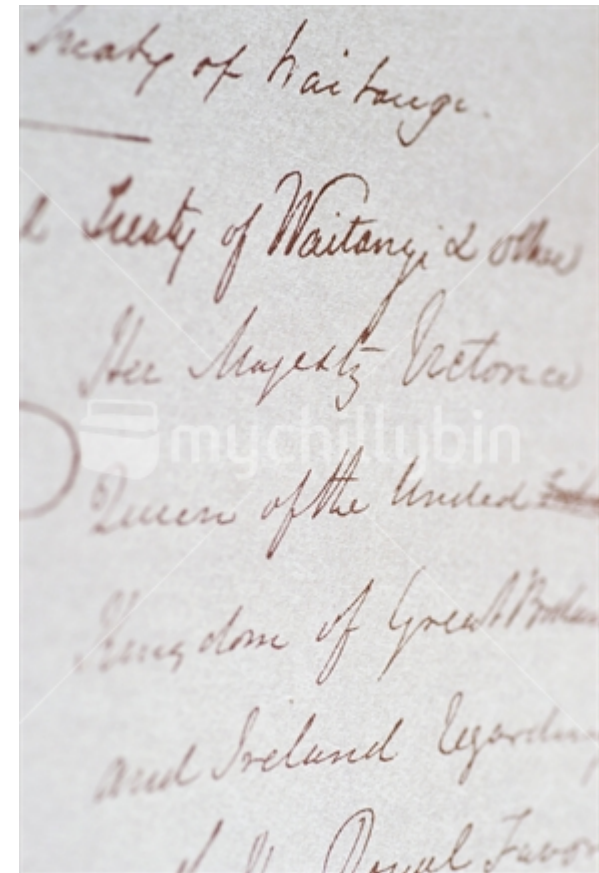 Treaty of Waitangi.
Treaty of Waitangi & other
Her Majesty Victoria
mychillybin
Queen of the United
Kingdom of Great Britain
and Ireland regarding
Royal Favor